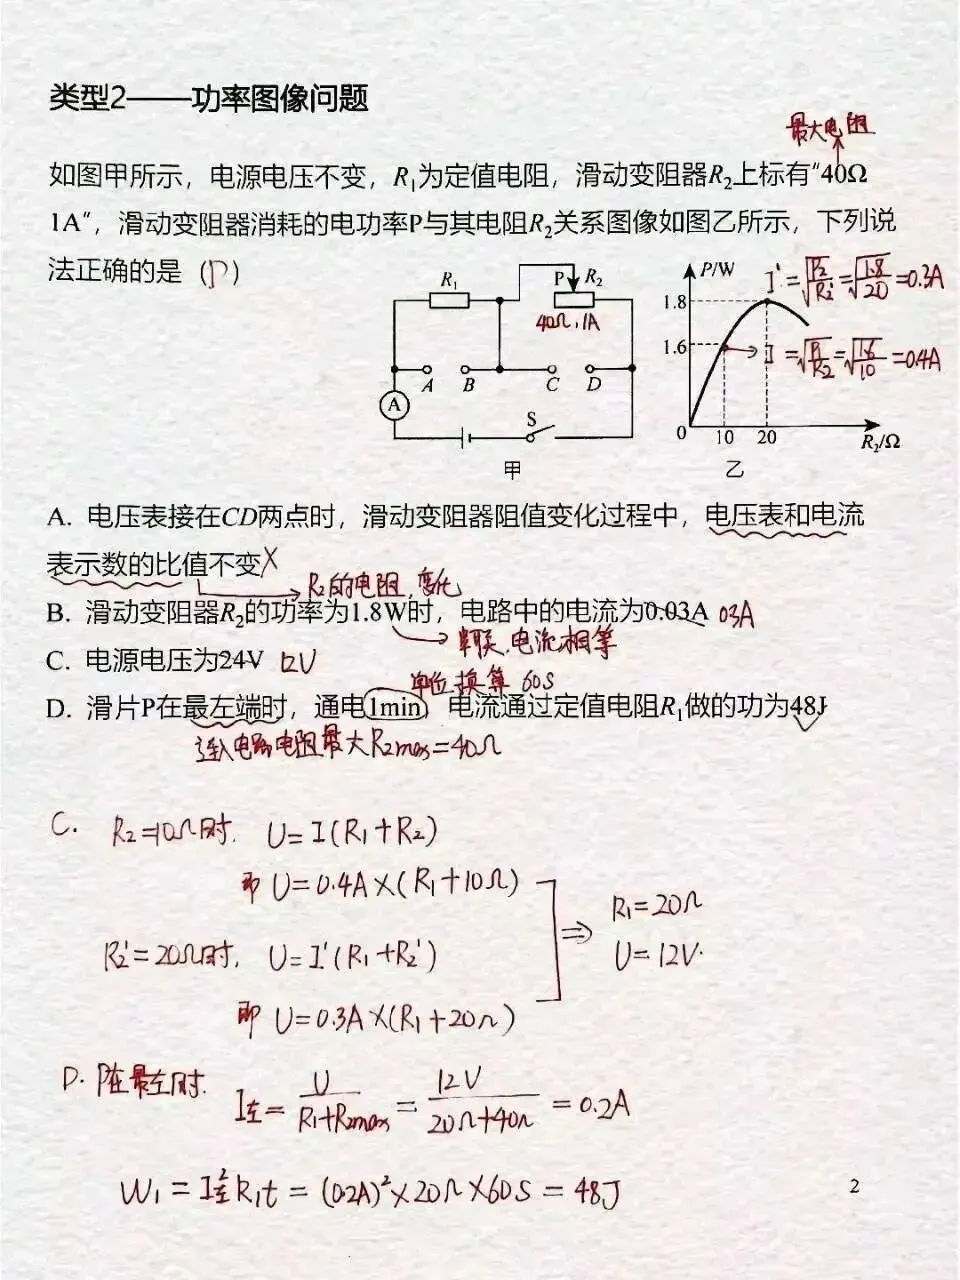 类型2——功率图像问题
最大电阻
如图甲所示，电源电压不变，R₁为定值电阻，滑动变阻器R₂上标有“40Ω
1A”，滑动变阻器消耗的电功率P与其电阻R₂关系图像如图乙所示，下列说
法正确的是（D）
R₁ P R₂
40Ω，1A
A B C D
A
S
甲
P/W
1.8
1.6
0 10 20 R₂/Ω
乙
I'=√(P₂'/R₂')=√(1.8/20)=0.3A
I=√(P₂/R₂)=√(1.6/10)=0.4A
A. 电压表接在CD两点时，滑动变阻器阻值变化过程中，电压表和电流
表示数的比值不变X
R₂的电阻，变化
B. 滑动变阻器R₂的功率为1.8W时，电路中的电流为0.03A 03A
串联，电流相等
C. 电源电压为24V 12V
单位换算 60S
D. 滑片P在最左端时，通电1min，电流通过定值电阻R₁做的功为48J
连入电路电阻最大R₂max=40Ω
C. R₂=10Ω时. U=I(R₁+R₂)
即U=0.4A×(R₁+10Ω)
R₂'=20Ω时, U=I'(R₁+R₂')
即 U=0.3A×(R₁+20Ω)
⇒ R₁=20Ω
U=12V.
D. P在最左时. I左=U/(R₁+R₂max)=12V/(20Ω+40Ω)=0.2A
W₁=I左²R₁t=(0.2A)²×20Ω×60S=48J
2